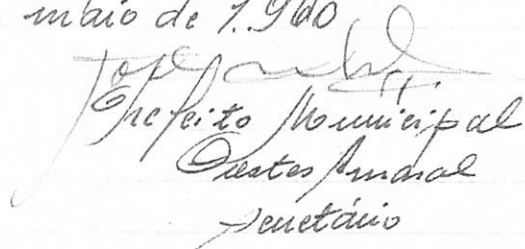 maio de 1.960
José
Prefeito Municipal
Orestes Amaral
Secretário